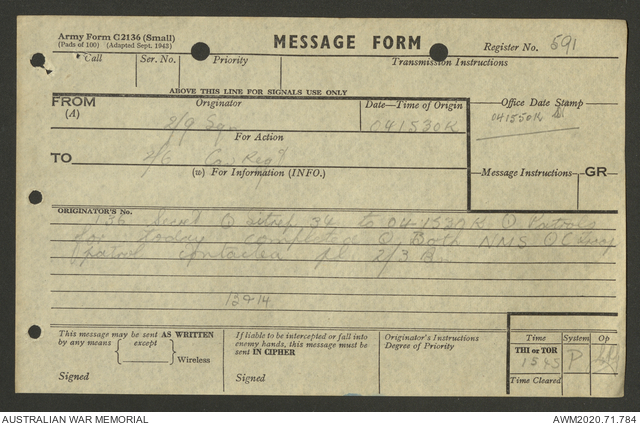 Army Form C2136 (Small)
(Pads of 100) (Adapted Sept. 1943)
MESSAGE FORM
Register No. 691
Call
Ser. No.
Priority
Transmission Instructions
ABOVE THIS LINE FOR SIGNALS USE ONLY
FROM
(A)
Originator
Date—Time of Origin
Office Date Stamp
2/9
041530K
041550K
For Action
TO
2/6 Cav Regt
(w) For Information (INFO.)
Message Instructions
GR
ORIGINATOR'S No.
136 O sitrep 34 to 04-1530K O Patrols
for today completed O Both NMS O C
patrol contacted pl 2/3 Bn
13914
This message may be sent AS WRITTEN
by any means except
Wireless
Signed
If liable to be intercepted or fall into
enemy hands, this message must be
sent IN CIPHER
Signed
Originator's Instructions
Degree of Priority
Time
System
Op
THI or TOR
1545
P
Time Cleared
AUSTRALIAN WAR MEMORIAL
AWM2020.71.784